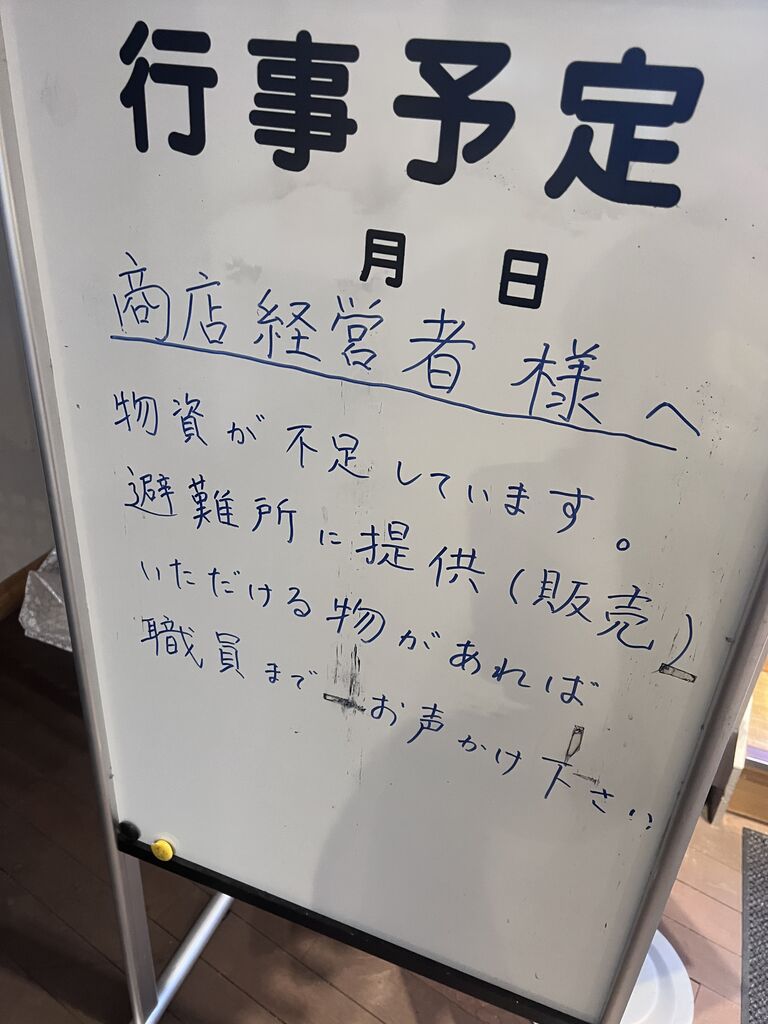 行事予定
月 日
商店経営者様へ
物資が不足しています。
避難所に提供(販売)
いただける物があれば
職員までお声かけ下さい